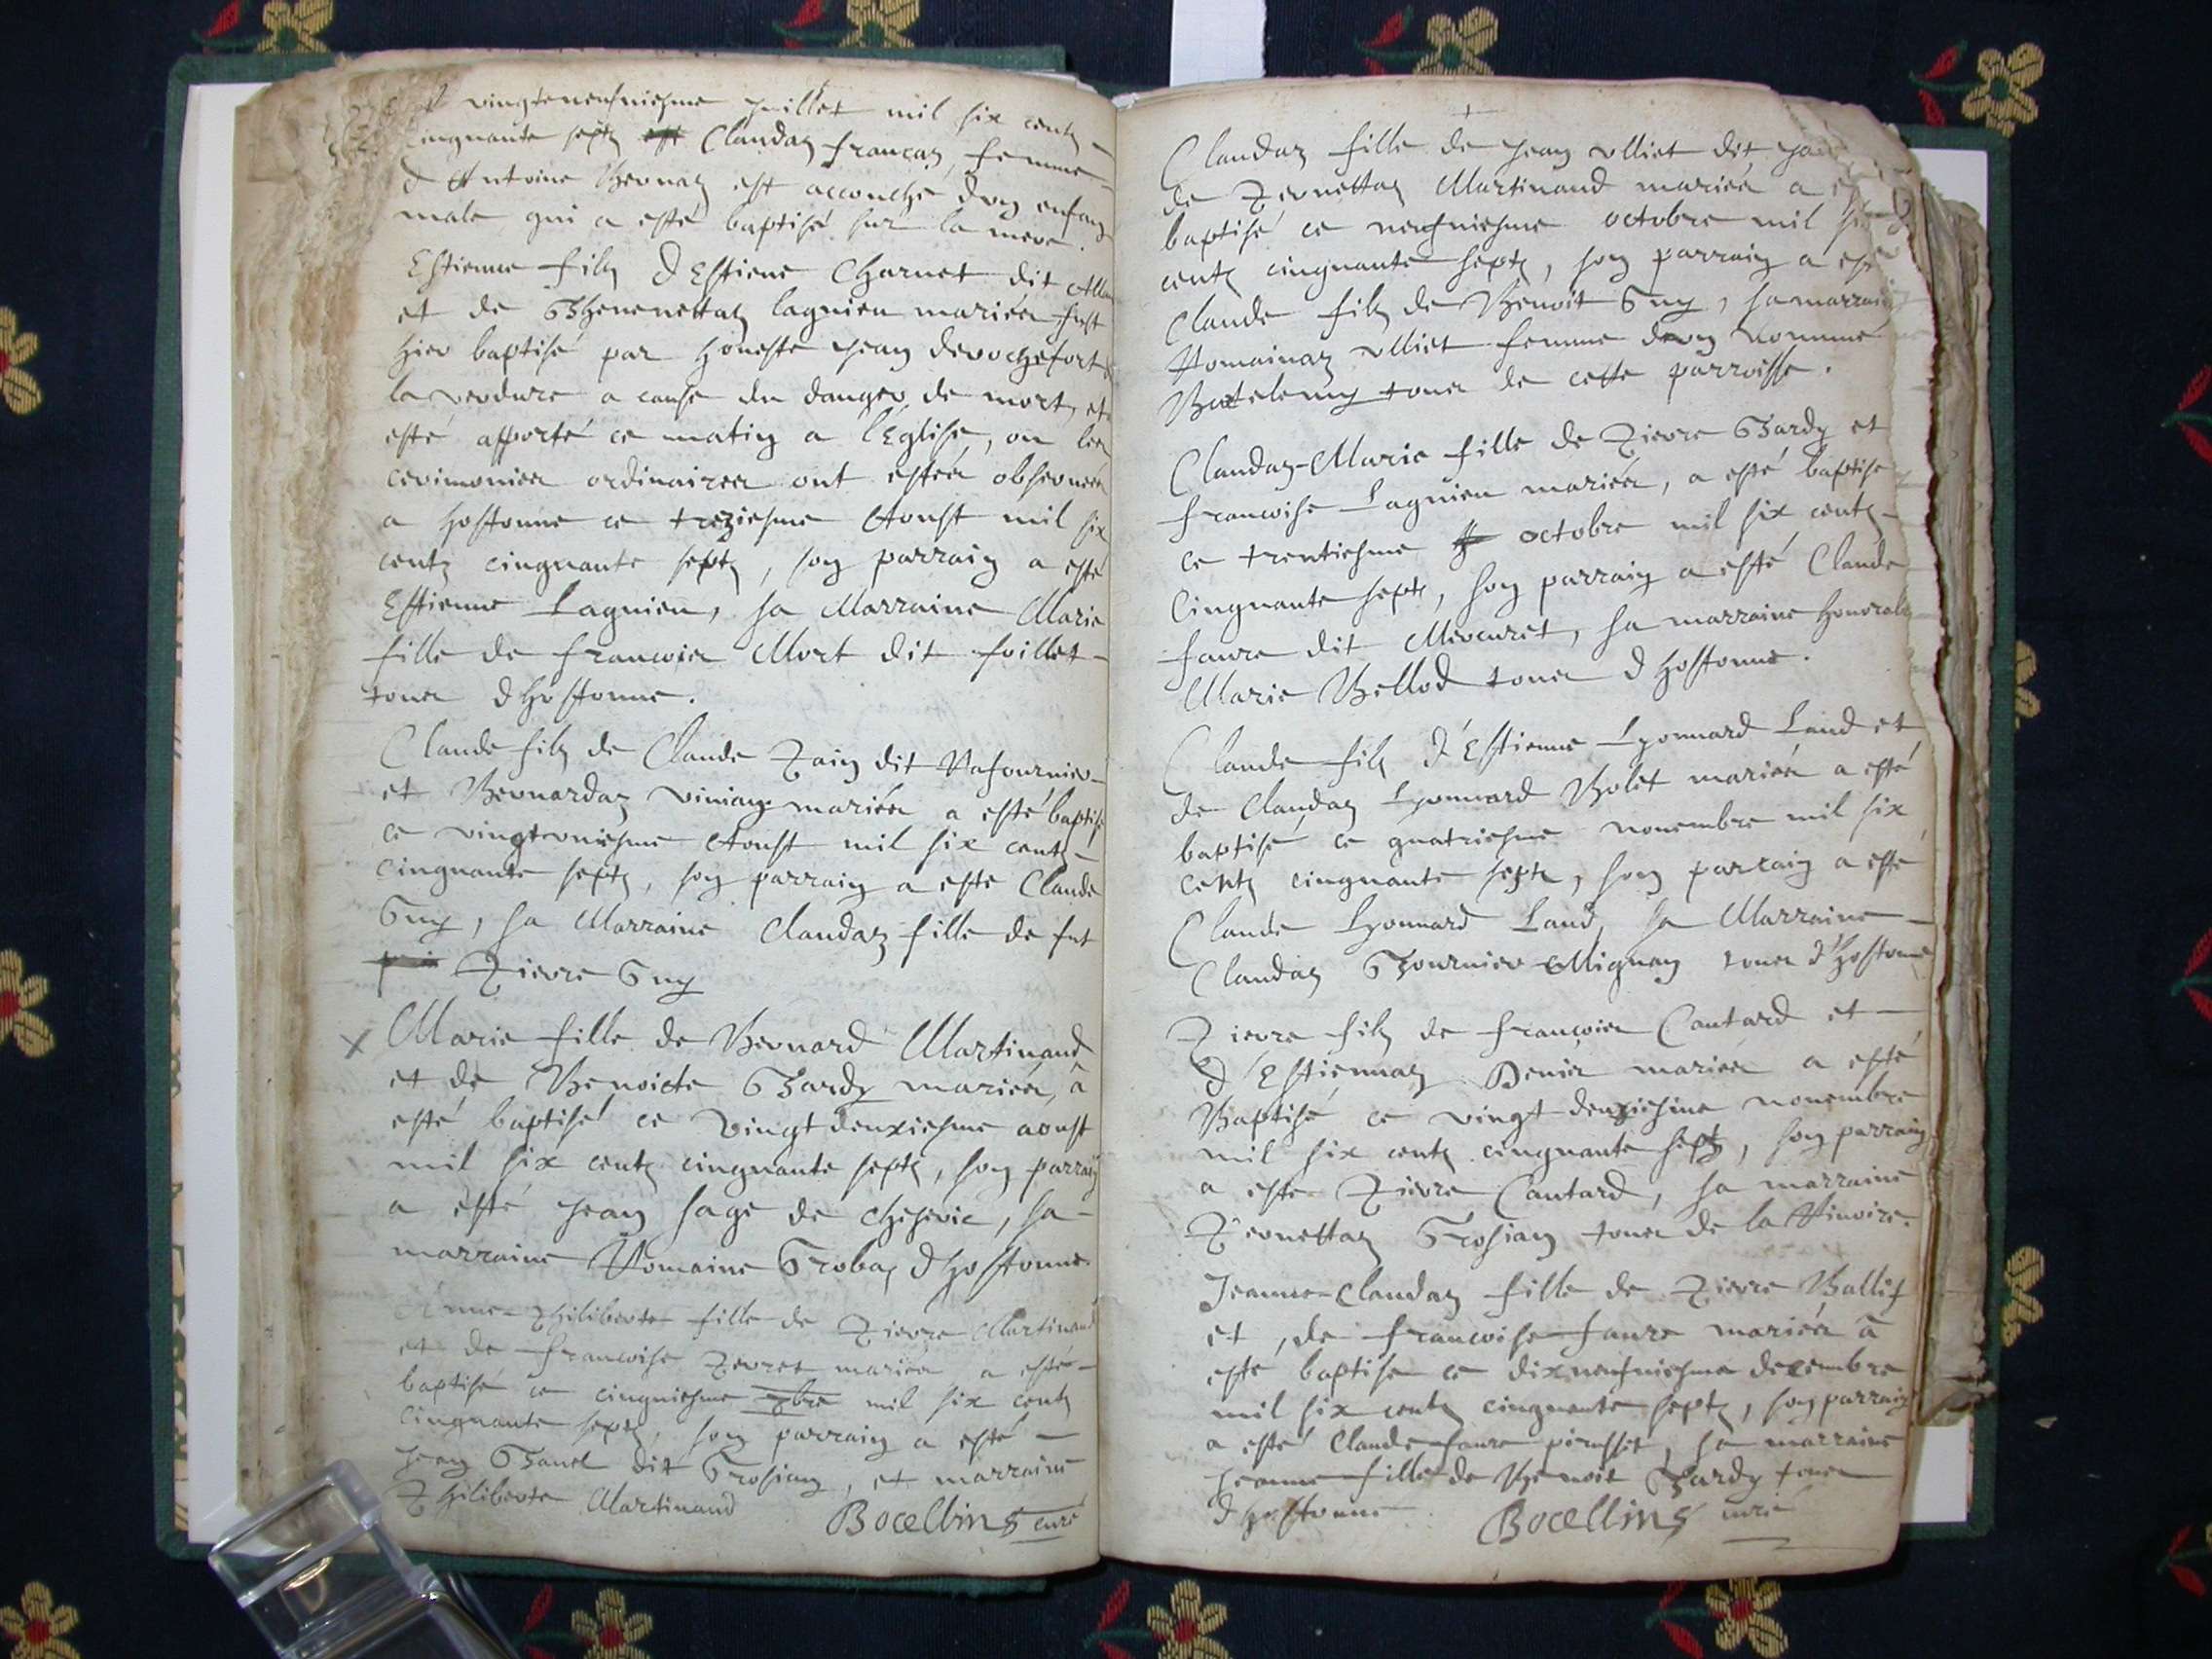 vingtneufviesme juillet mil six centz
cinquante septz Claudaz Francaz, femme
d'Antoine Bernaz est accouché d'un enfanz
male qui a esté baptisé sur la mere.
Estienne filz d'Estiene Charvet dit
et de Thevenettaz Lagnieu mariés fust
hier baptisé par honeste Jean derochefort
la verdure a cause du danger de mort, et
esté apporté ce matin a l'Eglise, ou les
cerimonies ordinaires ont estées observées
a hostonne ce treziesme Aoust mil six
centz cinquante septz, son parrain a esté
Estienne Lagnieu, sa Marraine Marie
fille de Francois Mort dit foillet
tous d'hostonne.
Claude filz de Claude Pain dit Vafournier
et Bernardaz mariés a esté baptisé
ce vingtuniesme Aoust mil six centz
cinquante septz, son parrain a este Claude
Guy, sa Marraine Claudaz fille de fut
Pierre Guy
x Marie fille de Bernard Martinand
et de Benoicte Tardy mariés, a
esté baptisé ce vingt deuxiesme aoust
mil six centz cinquante septz, son parrain
a esté Jean sage de chesevie, sa
marraine Romaine Grobaz d'hostonne.
Anne-Philiberte fille de Pierre Martinand
et de Francoise Perret mariés a esté
baptisé ce cinquiesme 7bre mil six centz
cinquante septz, son parrain a esté
Jean Tanet dit Grosjean, et marraine
Philiberte Martinand Bocellins curé
Claudaz fille de Jean Ulliet dit
de Pernettaz Martinand mariés a
baptisé ce neufviesme octobre mil six
centz cinquante septz, son parrain a esté
Claude filz de Benoit Guy, sa marraine
Romainaz Ulliet femme d'un nommé
Batelemy tous de cette parroisse.
Claudaz-Marie fille de Pierre Tardy et
Francoise Lagnieu mariés, a esté baptisé
ce trentiesme octobre mil six centz
Cinquante septz, son parrain a esté Claude
faure dit Mercuret, sa marraine honorable
Marie Bellod tous d'hostonne.
Claude filz d'Estienne Lyonnard Land et
de Claudaz Lyonnard Bolet mariés a esté
baptisé ce quatriesme novembre mil six
centz cinquante septz, son parrain a esté
Claude Lyonnard Land, sa Marraine
Claudaz Tournier-Mignon tous d'hostonne
Pierre filz de Francois Cantard et
d'Estiennaz Denis mariés a esté
Baptisé ce vingt deuxiesme novembre
mil six centz cinquante septz, son parrain
a esté Pierre Cantard, sa marraine
Pernettaz Grosjean tous de la Rivoire.
Jeanne-Claudaz fille de Pierre Ballif
et, de Francoise Faure mariés a
este baptisé ce dixneufviesme decembre
mil six centz cinquante septz, son parrain
a esté Claude Faure perusset, sa marraine
Jeanne fille de Benoit Tardy tous
d'hostonne Bocellins curé